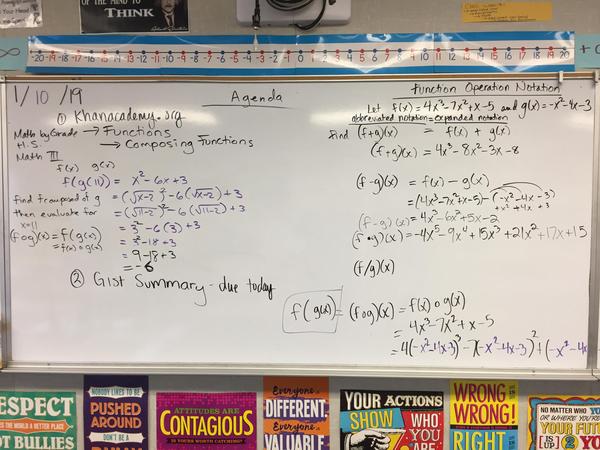 THINK
-20 -19 -18 -17 -16 -15 -14 -13 -12 -11 -10 -9 -8 -7 -6 -5 -4 -3 -2 -1 0 1 2 3 4 5 6 7 8 9 10 11 12 13 14 15 16 17 18 19 20
1/10/19
Agenda
① Khanacademy.org
Math by Grade → Functions
H.S. → Composing Functions
Math III
f(x) g(x)
f(g(11)) = x²-6x+3
Find f composed of g = (√x-2)²-6(√x-2)+3
then evaluate for = (√11-2)²-6(√11-2)+3
x=11
(fog)(x)=f(g(x) = 3²-6(3)+3
=f(x)og(x) = 3²-18+3
= 9-18+3
= -6
② Gist Summary - due today
Function Operation Notation
Let f(x)=4x³-7x²+x-5 and g(x)=-x²-4x-3
abbreviated notation = expanded notation
Find (f+g)(x) = f(x) + g(x)
(f+g)(x) = 4x³-8x²-3x-8
(f-g)(x) = f(x) - g(x)
=(4x³-7x²+x-5)-(-x²-4x-3)
+x²+4x+3
(f-g)(x)=4x³-6x²+5x-2
(f•g)(x)=-4x⁵-9x⁴+15x³+21x²+17x+15
(f/g)(x)
f(g(x)) = (fog)(x) = f(x)og(x)
= 4x³-7x²+x-5
= 4(-x²-4x-3)³-7(-x²-4x-3)²+(-x³-4x
RESPECT
IES THE WORLD A BETTER PLACE
OT BULLIES
NOBODY LIKES TO BE
PUSHED
AROUND
DON'T BE A
ATTITUDES ARE
CONTAGIOUS
IS YOURS WORTH CATCHING?
Everyone is
DIFFERENT.
Everyone is
VALUABLE.
YOUR ACTIONS
SHOW
WHO
YOU
ARE
WRONG IS
WRONG!
RIGHT
NO MATTER WHO
OR WHERE YOU'RE
YOUR FUTU
IS UP 2 YOU